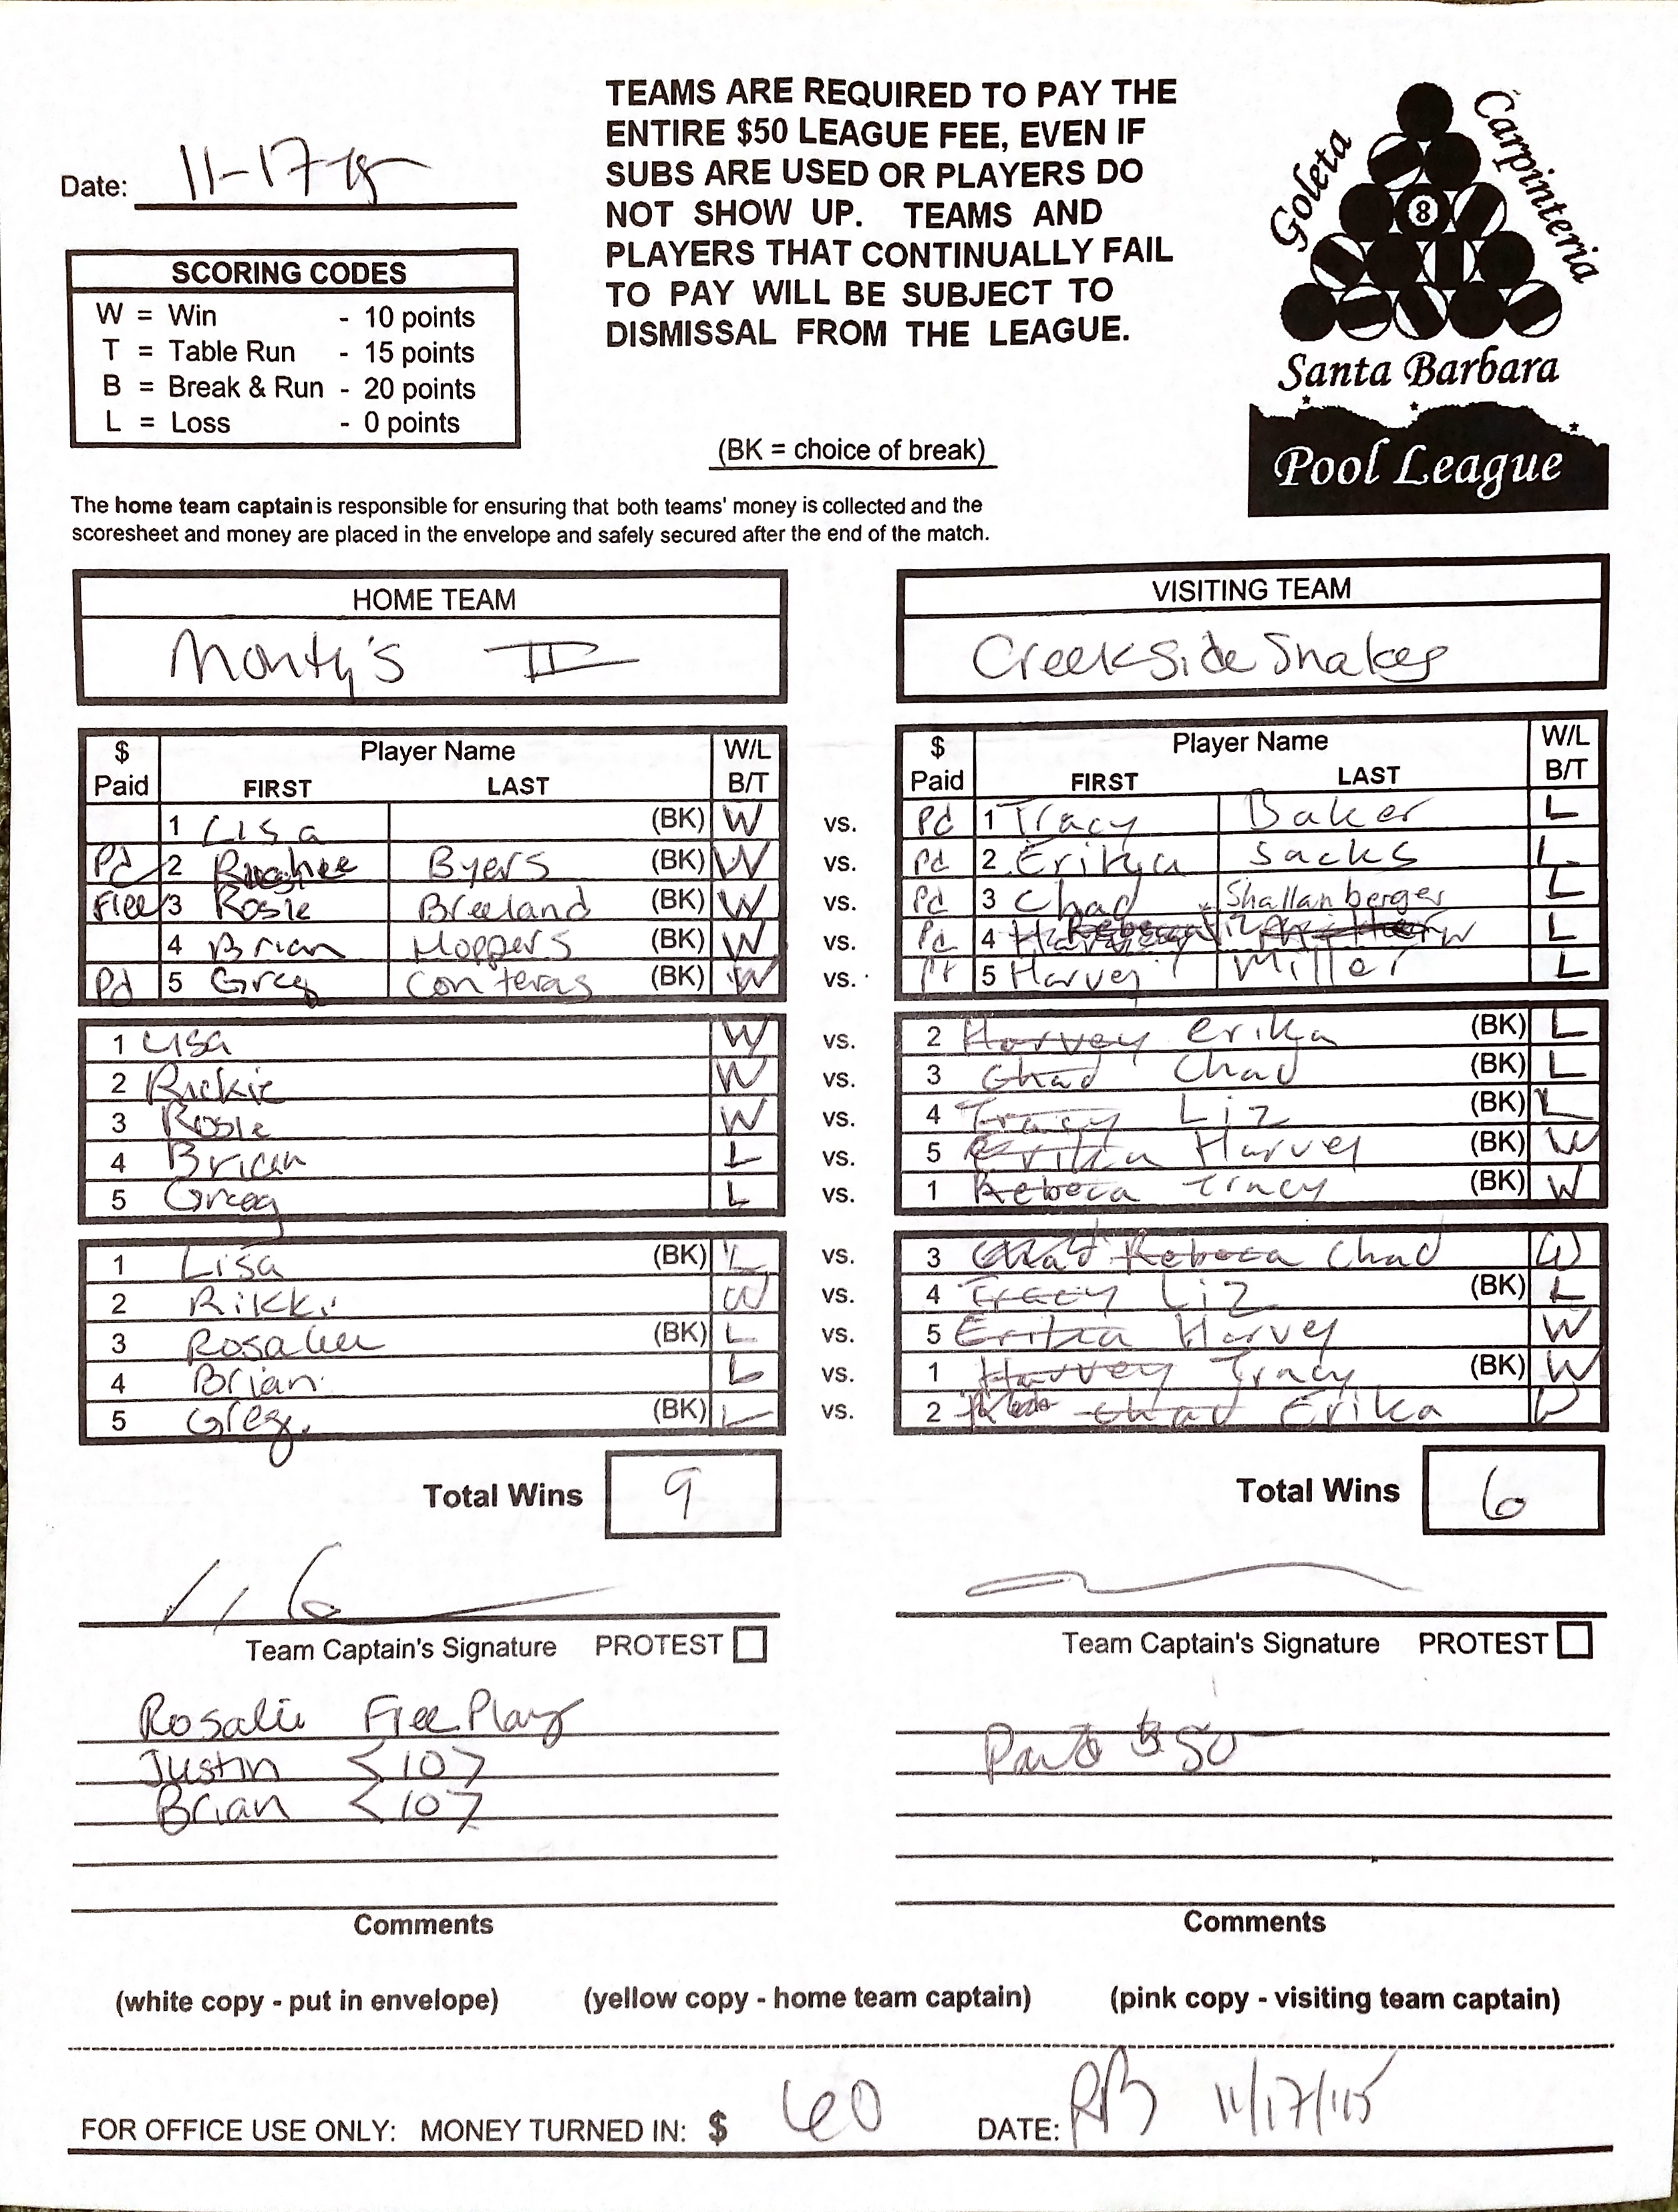 TEAMS ARE REQUIRED TO PAY THE
ENTIRE $50 LEAGUE FEE, EVEN IF
SUBS ARE USED OR PLAYERS DO
NOT SHOW UP. TEAMS AND
PLAYERS THAT CONTINUALLY FAIL
TO PAY WILL BE SUBJECT TO
DISMISSAL FROM THE LEAGUE.
Goleta
Carpinteria
8
Santa Barbara
Pool League
Date: 11-17-15
SCORING CODES
W = Win - 10 points
T = Table Run - 15 points
B = Break & Run - 20 points
L = Loss - 0 points
(BK = choice of break)
The home team captain is responsible for ensuring that both teams' money is collected and the
scoresheet and money are placed in the envelope and safely secured after the end of the match.
HOME TEAM
Monty's II
VISITING TEAM
Creekside Snakes
$ Paid Player Name FIRST LAST W/L B/T
$ Paid Player Name FIRST LAST W/L B/T
1 Lisa (BK) W vs. Pd 1 Tracy Baker L
Pd 2 Byers (BK) W vs. Pd 2 Erikya Sacks L
Free 3 Rosie Breeland (BK) W vs. Pd 3 Chad Shallanberger L
4 Brian Hoppers (BK) W vs. Pd 4 L
Pd 5 Greg Conteras (BK) W vs. 5 Harvey Miller L
1 Lisa W vs. 2 Harvey Erika (BK) L
2 Rickie W vs. 3 Chad Chad (BK) L
3 Rosie W vs. 4 Tracy Liz (BK) L
4 Brian L vs. 5 Erika Harvey (BK) W
5 Greg L vs. 1 Rebeca Tracy (BK) W
1 Lisa (BK) L vs. 3 Chad Rebeca Chad W
2 Rikki W vs. 4 Tracy Liz (BK) L
3 Rosalie (BK) L vs. 5 Erika Harvey W
4 Brian L vs. 1 Harvey Tracy (BK) W
5 Greg (BK) L vs. 2 Chad Erika W
Total Wins 9
Total Wins 6
Team Captain's Signature PROTEST
Team Captain's Signature PROTEST
Rosalie Free Play
Justin <10>
Brian <10>
Paid $50
Comments
Comments
(white copy - put in envelope) (yellow copy - home team captain) (pink copy - visiting team captain)
FOR OFFICE USE ONLY: MONEY TURNED IN: $ 60 DATE: RB 11/17/15